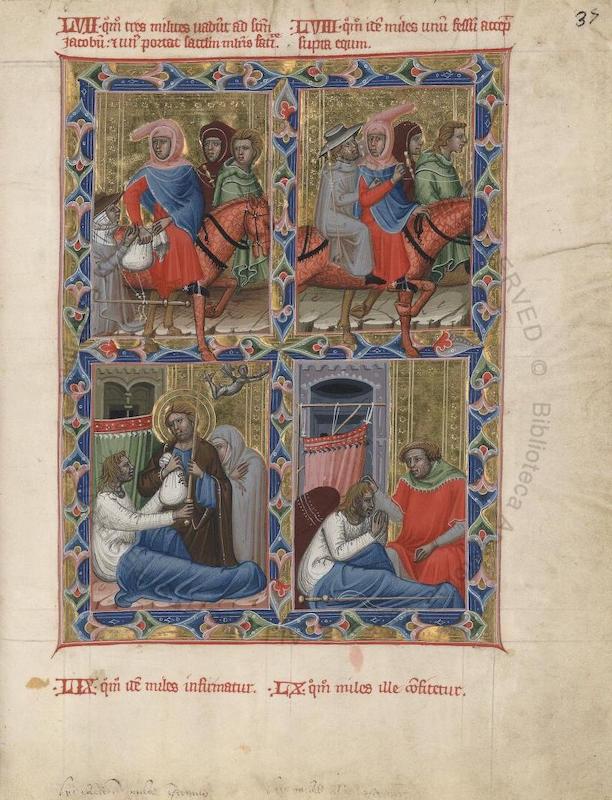 37
LVII· qm̄ tres milites uadūt ad scm̄
Jacobū: ⁊ un⁹ portat
LVIII· qm̄ itē miles unū fessū accep̄
supra equm.
·LIX· qm̄ itē miles infirmatur.
·LX· qm̄ miles ille cōfitetur.
ERVED © Biblioteca A